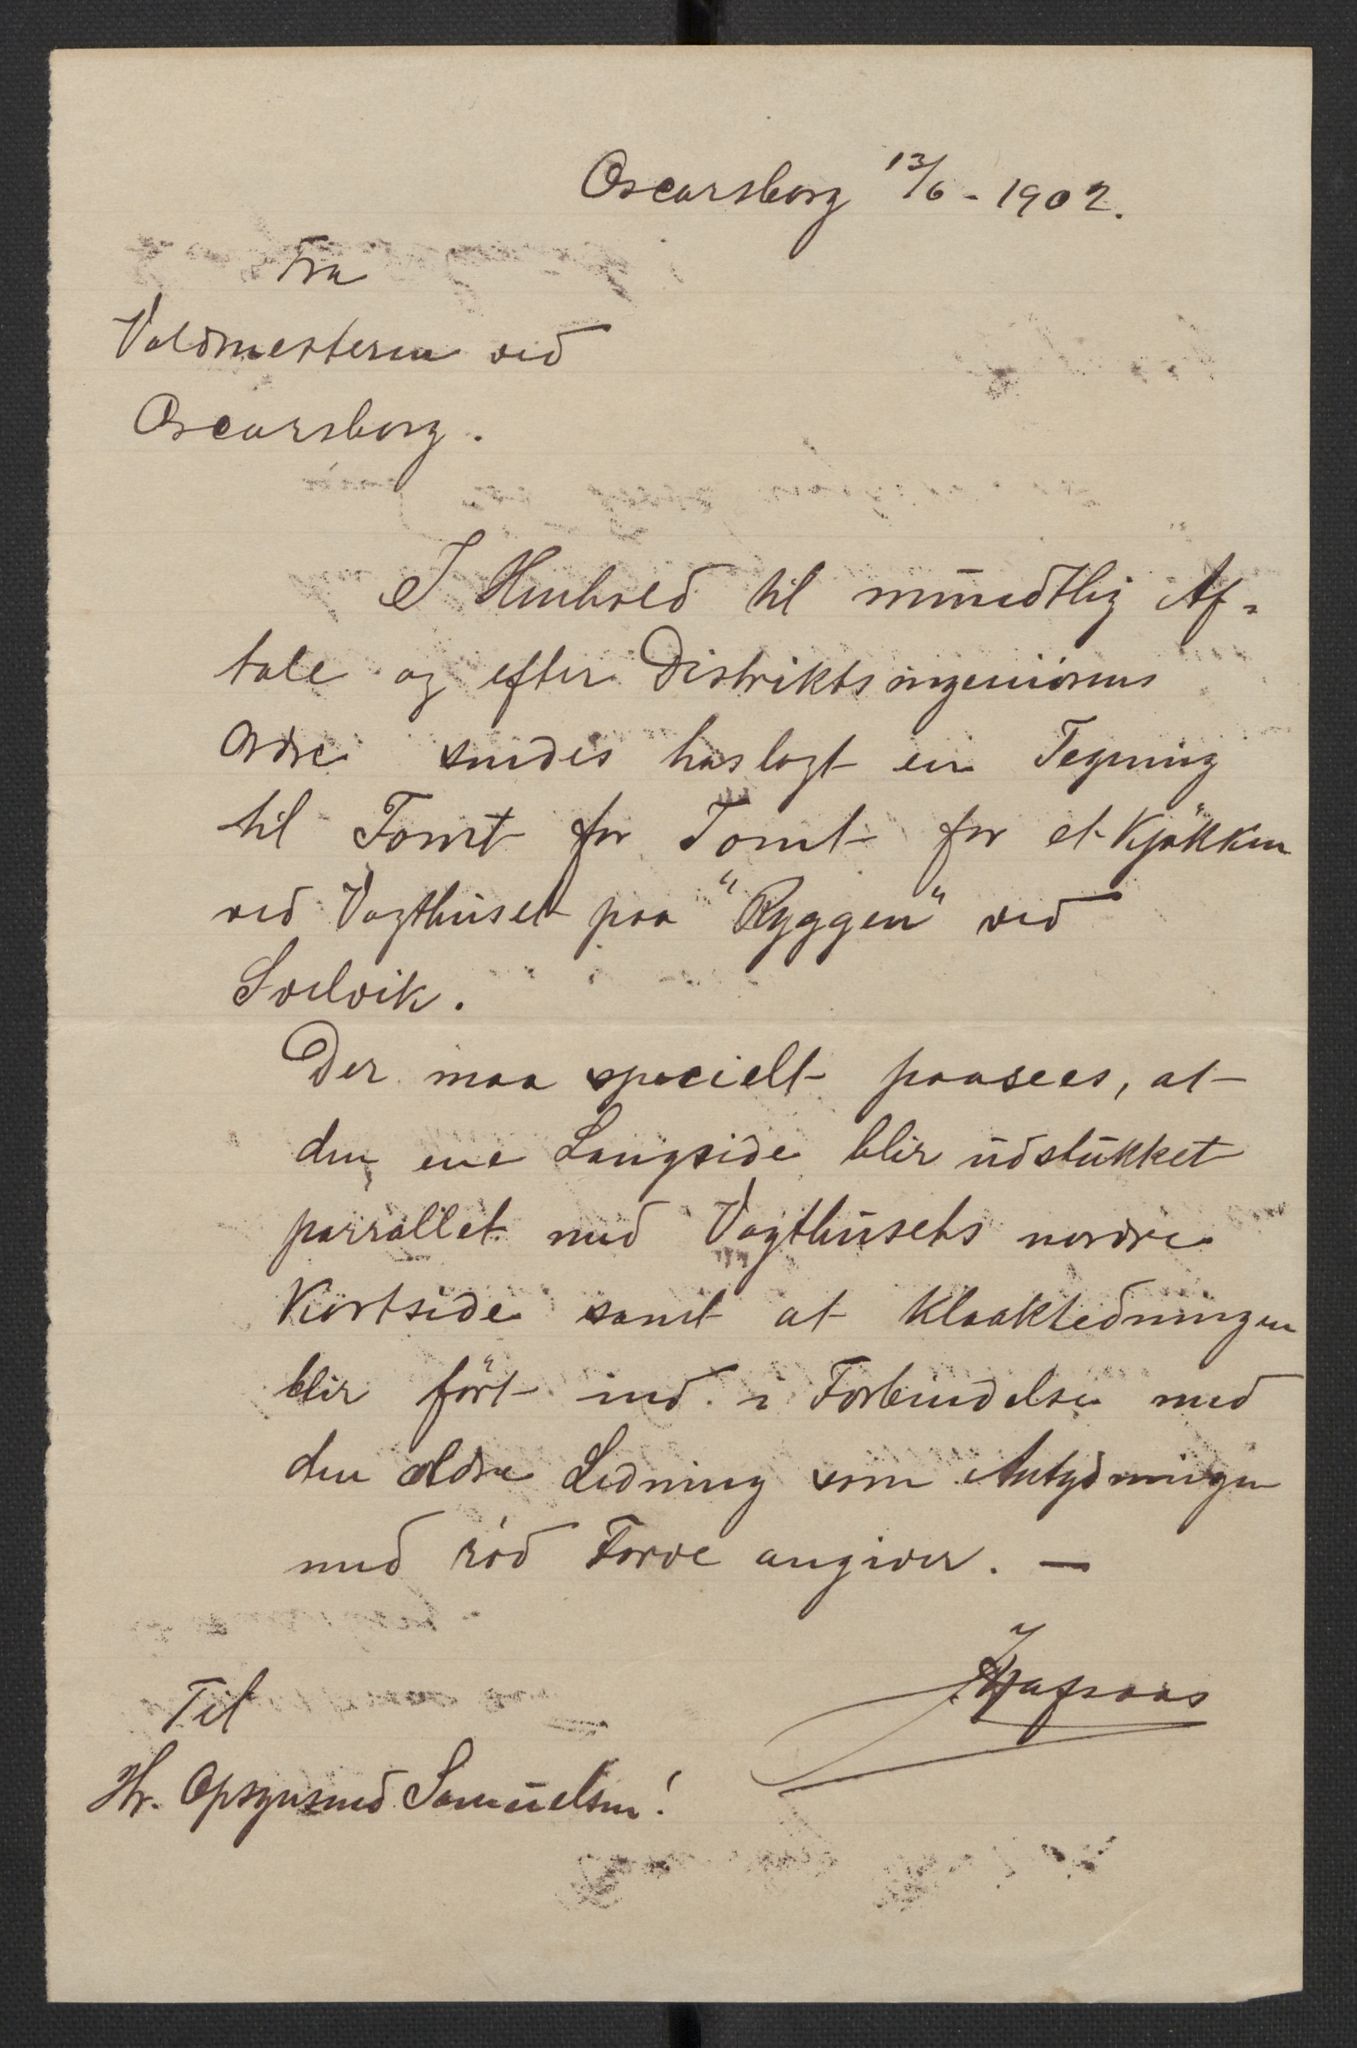 Oscarsborg 13/6 - 1902.
Fra
Voldmesteren ved
Oscarsborg.
I Henhold til mundtlig Af-
tale og efter Distriktsingeniörens
Ordre sendes hoslagt en Tegning
til Tomt for Tomt for et Kjökken
ved Vagthuset paa "Ryggen" ved
Svelvik.
Der maa specielt paasees, at
den ene Langside blir udstukket
parrallet med Vagthusets nordre
Kortside samt at Kloakledningen
blir fört ind i Forbindelse med
den ældre Ledning som Antydningen
med röd Farve angiver. —
Til
Hr. Opsynsmd Samuelsen!